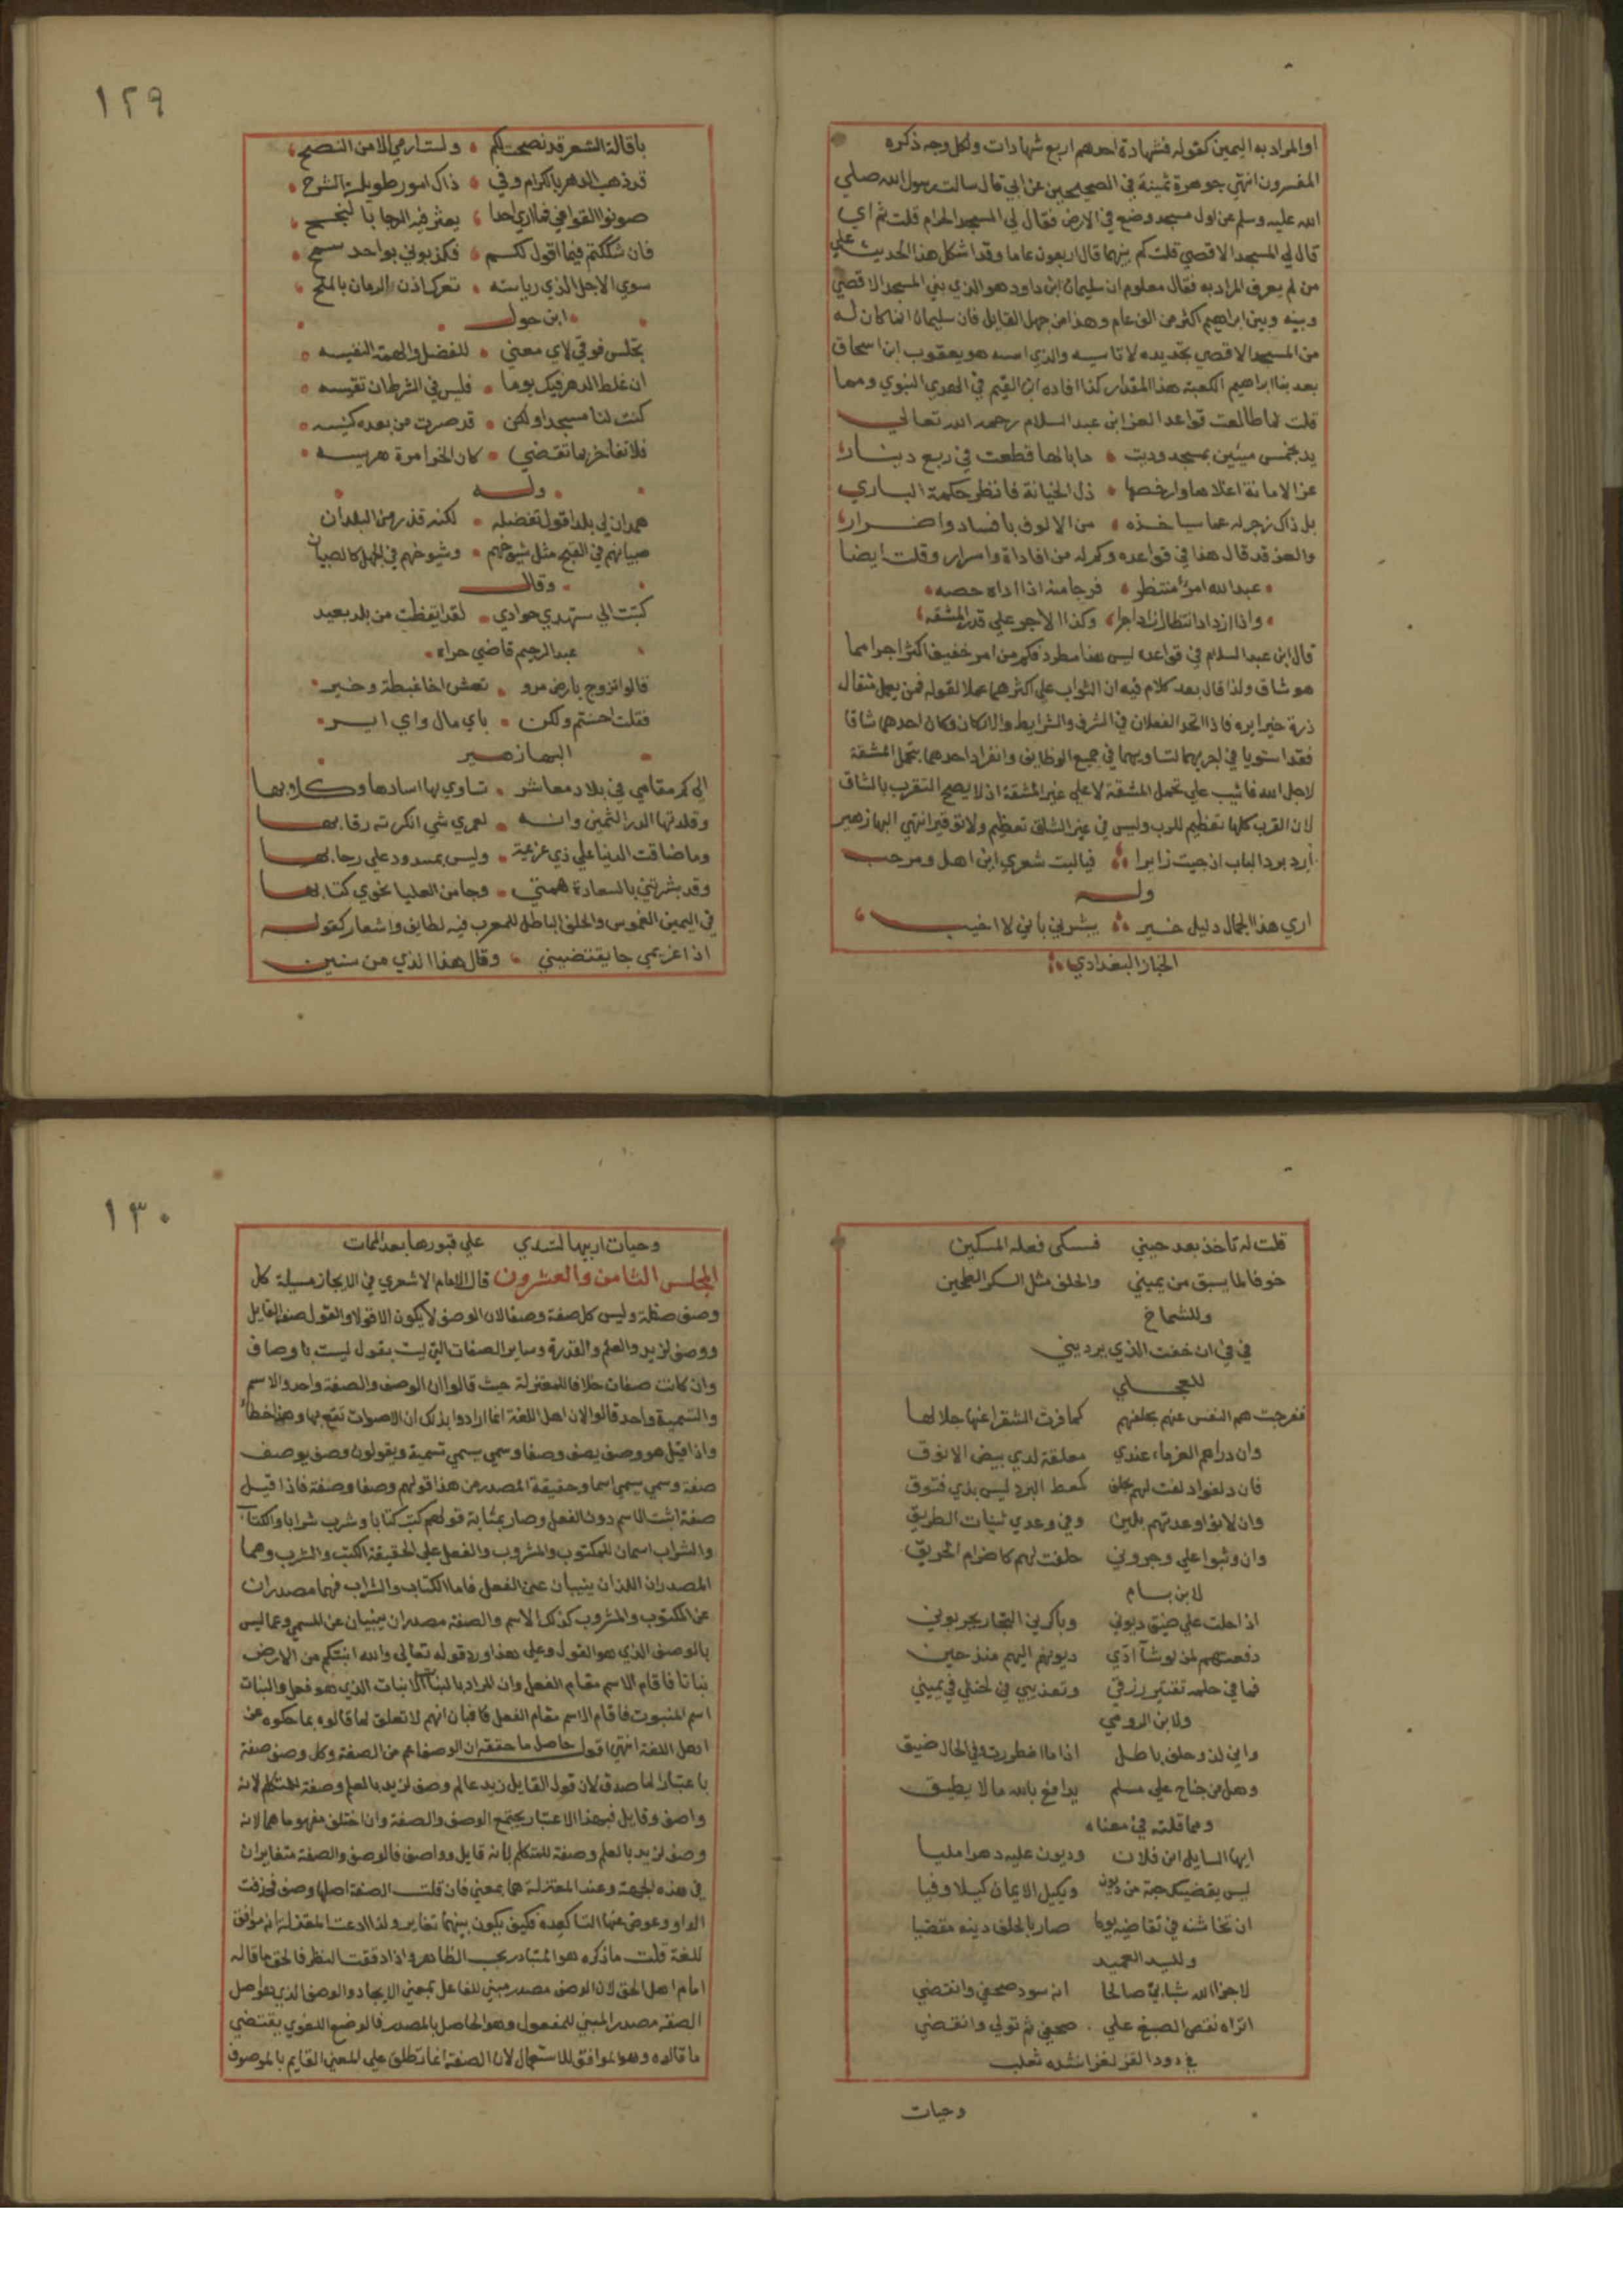 او المراد به اليمين كقوله فشهادة احدهم اربع شهادات ولكل وجه ذكره
المفسرون انتهي جوهرة ثمينة في الصحيحين عن ابي قال سالت رسول الله صلي
الله عليه وسلم عن اول مسجد وضع في الارض فقال لي المسجد الحرام قلت ثم اي
قال لي المسجد الاقصي قلت كم بينهما قال اربعون عاما وقد اشكل هذا الحديث علي
من لم يعرف المراد به فقال معلوم ان سليمان ابن داود هو الذي بني المسجد الاقصي
وبينه وبين ابراهيم اكثر من الف عام وهذا من جهل القايل فان سليمان انما كان له
من المسجد الاقصي تجديده لا تاسيسه والذي اسسه هو يعقوب ابن اسحاق
بعد بنا ابراهيم الكعبة هذا المقدار كذا افاده ابن القيم في الهدي النبوي ومما
قلت لما طالعت قواعد العز ابن عبد السلام رحمه الله تعالي
يد بخمس ميئين بمسجد وديت ما بالها قطعت في ربع دينار
عز الامانة اغلاها وارخصها ذل الخيانة فانظر حكمة الباري
بل ذاك زجر له عما سياخذه من الالوف بافساد واضرار
والعز قد قال هذا في قواعده وكم له من افاداة واسرار وقلت ايضا
عبد الله امرؤ منتظر فرجا منه اذا اداه حصه
واذا ازداد انتظار زاد اجرا وكذا الاجر علي قدر المشقه
قال ابن عبد السلام في قواعده ليس هذا مطرد فكم من امر خفيف اكثر اجرا مما
هو شاق ولذا قال بعد كلام فيه ان الثواب علي اكثرهما عملا لقوله فمن يعمل مثقال
ذرة خيرا يره فاذا اتحد الفعلان في الشرف والشرايط والاركان وكان احدهما شاقا
فقد استويا في اجريهما لتساويهما في جميع الوظايف وانفراد احدهما بتحمل المشقة
لاجل الله فاثيب علي تحمل المشقة لا علي غير المشقة اذ لا يصح التقرب بالشاق
لان القرب كلها تعظيم للرب وليس في عين الشاق تعظيم ولا توقير انتهي البها زهير
أرد برد الباب اذ جيت زايرا فياليت شعري اين اهل ومرحب
وله
اري هذا الجمال دليل خير يبشرني باني لا اخيب
الخباز البغدادي
١٢٩
يا قالة الشعر قد نصحت لكم ولست ارمي الا من النصح
قد ذهب الدهر بالكرام وفي ذاك امور طويلة الشرح
صونوا القوافي فما اري احدا يعثر فيه الرجا بالنجح
فان شككتم فيما اقول لكم فكذبوني بواحد سمح
سوي الاجل الذي رياسته تعرك اذن الزمان بالملح
ابن حول
تجلس فوقي لاي معني للفضل والهمة النفيسه
ان غلط الدهر فيك يوما فليس في الشرط ان تقيسه
كنت لنا مسجدا ولكن قد صرت من بعده كنيسه
فلا تفاخر بما تقضي كان الخرا مرة هريسه
وله
همدان لي بلد اقول تفضيله لكنه قذر من البلدان
صبيانهم في القبح مثل شيوخهم وشيوخهم في الجهل كالصبيان
وقال
كتبت الي ستهدي جوادي لقد ايقظت من بلد بعيد
عبد الرحيم قاضي حراه
قالوا تزوج بارض مرو تعش اخا غبطة وخير
فقلت احسنتم ولكن باي مال واي اير
البها زهير
الي كم مقامي في بلاد معاشر تساوي بها اسادها وكلابها
وقلدتها الدر الثمين وانه لعمري شي انكرته رقابها
وما ضاقت الدنيا علي ذي عزيمة وليس بمسدود علي رحابها
وقد بشرتني بالسعادة همتي وجا من العليا نحوي كتابها
في اليمين الغموس والحلف الباطل للعرب فيه لطايف واشعار كقوله
اذا غريمي جا يقتضيني وقال هذا الذي من سنين
قلت له تاخذ بعد حيني فسكي فعله المسكين
خوفا لما يسبق من يميني والحلف مثل السكر الطحين
وللشماخ
في في ان خفت الذي يرديني
للعجلي
ففرجت هم النفس عنهم بحلفهم كما فرت الشقرا عنها جلالها
وان دراهم الغرماء عندي معلقة لدي بيض الانوق
فان دلفوا دلفت لهم بحلف كعط البرد ليس بذي فتوق
وان لانوا وعدتهم بلين وفي وعدي ثنيات الطريق
وان وثبوا علي وجروني حلفت لهم كاضرام الحريق
لابن بسام
اذا حلت علي ضيق ديوني وباكرني التجار يجربوني
دفعتهم لمن لو شآ ادي ديونهم اليهم منذ حين
فما في حلمه تقتير رزقي وتعذيبي في لحنلي في يميني
ولابن الرومي
واني لذو حلف باطل اذا ما اضطررت وفي الحال ضيق
وهل من جناح علي مسلم يدافع بالله ما لا يطيق
ومما قلته في معناه
ايها السايل ابن فلان وديون عليه دهرا مليا
ليس يقضيك حبة من ديون ويكيل الايمان كيلا وفيا
ان تخاشنه في تقاضيه يوما صار بالحلف دينه مقضيا
وللسيد العميد
لا جزا الله شبابي صالحا انه سود صحفي وانقضي
اتراه نقض الصبغ علي صحفي ثم تولي وانقضي
في دود القز لغز انشده ثعلب
وحيات
١٣٠
وحيات اربيها لتسدي علي قبورها بعد الممات
المجلس الثامن والعشرون قال الامام الاشعري في الايجاز مسيلة كل
وصف صفة وليس كل صفة وصفا لان الوصف لا يكون الا قولا والقول صفة القايل
ووصف لزيد والعلم والقدرة وساير الصفات التي ليست بقول ليست باوصاف
وان كانت صفات خلافا للمعتزلة حيث قالوا ان الوصف والصفة واحد والاسم
والتسمية واحد قالوا لان اهل اللغة انما ارادوا بذلك ان الاصوات تقع بها وهذا خطأ
واذا قيل هو وصف يصف وصفا وسمي يسمي تسمية ويقولون وصف يوصف
صفة وسمي يسمي اسما وحقيقة المصدر من هذا قولهم وصفا وصفة فاذا قيل
صفة اثبت الاسم دون الفعل وصار بمثابة قولهم كتب كتابا وشرب شرابا والكتاب
والشراب اسمان للمكتوب والمشروب والفعل علي الحقيقة الكتب والشرب وهما
المصدران اللذان ينبيان عن الفعل فاما الكتاب والشراب فهما مصدران
عن المكتوب والمشروب كذلك الاسم والصفة مصدران ينبيان عن المسمي وعما ليس
بالوصف الذي هو القول وعلي هذا ورد قوله تعالي والله انبتكم من الارض
نباتا فاقام الاسم مقام الفعل وان المراد بالنبات الانبات الذي هو فعل والنبات
اسم المنبوت فاقام الاسم مقام الفعل فابان انهم لا تعلق لما قالوه بما حكوه عن
اهل اللغة انتهي اقول حاصل ما حققه ان الوصف اعم من الصفة وكل وصف صفة
باعتبار لما صدق لان قول القايل زيد عالم وصف لزيد بالعلم وصفة للمتكلم لانه
واصف وقايل فبهذا الاعتبار يجتمع الوصف والصفة وان اختلف مفهوماهما لانه
وصف لزيد بالعلم وصفة للمتكلم لانه قايل وواصف فالوصف والصفة متغايران
في هذه الجهة وعند المعتزلة هما بمعني فان قلت الصفة اصلها وصف فحذفت
الواو وعوض عنها التا كعده فكيف يكون بينهما تغاير ولذا ادعت المعتزلة انه موافق
للغة قلت ما ذكره هو المتبادر بحسب الظاهر واذا دققت النظر فالحق ما قاله
امام اهل الحق لان الوصف مصدر مبني للفاعل بمعني الايجاد والوصف الذي هو اصل
الصفة مصدر المبني للمفعول وهو الحاصل بالمصدر فالوضع اللغوي يقتضي
ما قالوه وهو الموافق للاستعمال لان الصفة انما تطلق علي المعني القايم بالموصوف